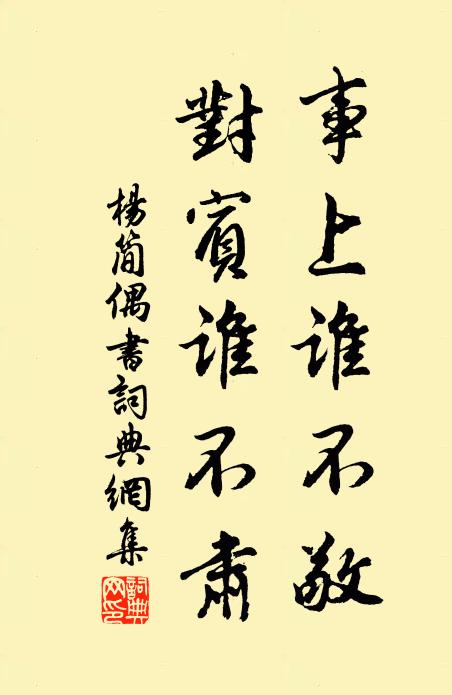 事上誰不敬
對賓誰不肅
楊簡偶書詞典網集
詞典网印